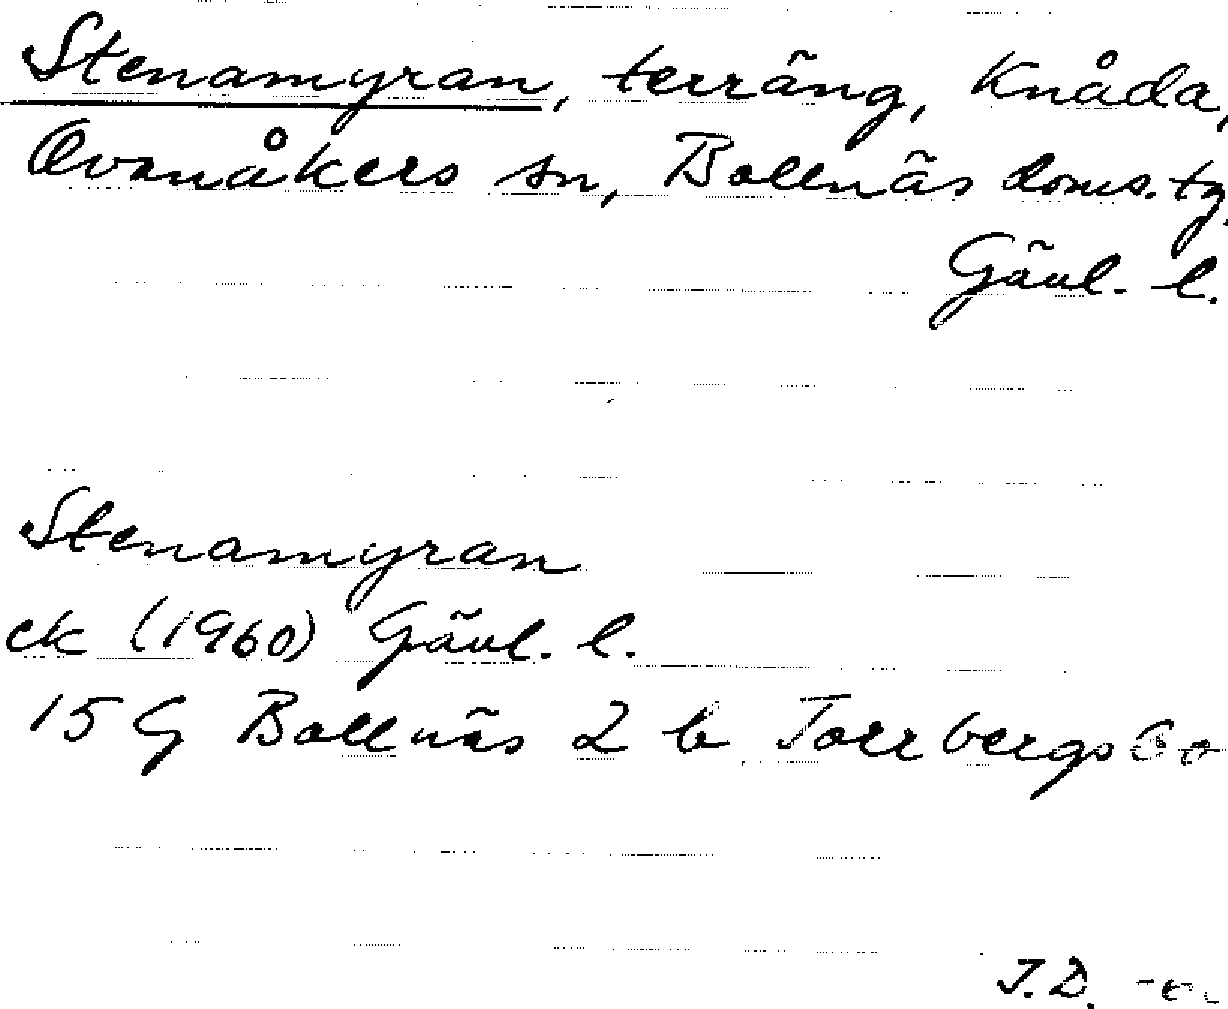 Stenamyran, terräng, Knåda,
Ovanåkers sn, Bollnäs doms. tg.
Gävl. l.
Stenamyran
ek (1960) Gävl. l.
15 G Bollnäs 2 b Torrbergsbo
J.D.